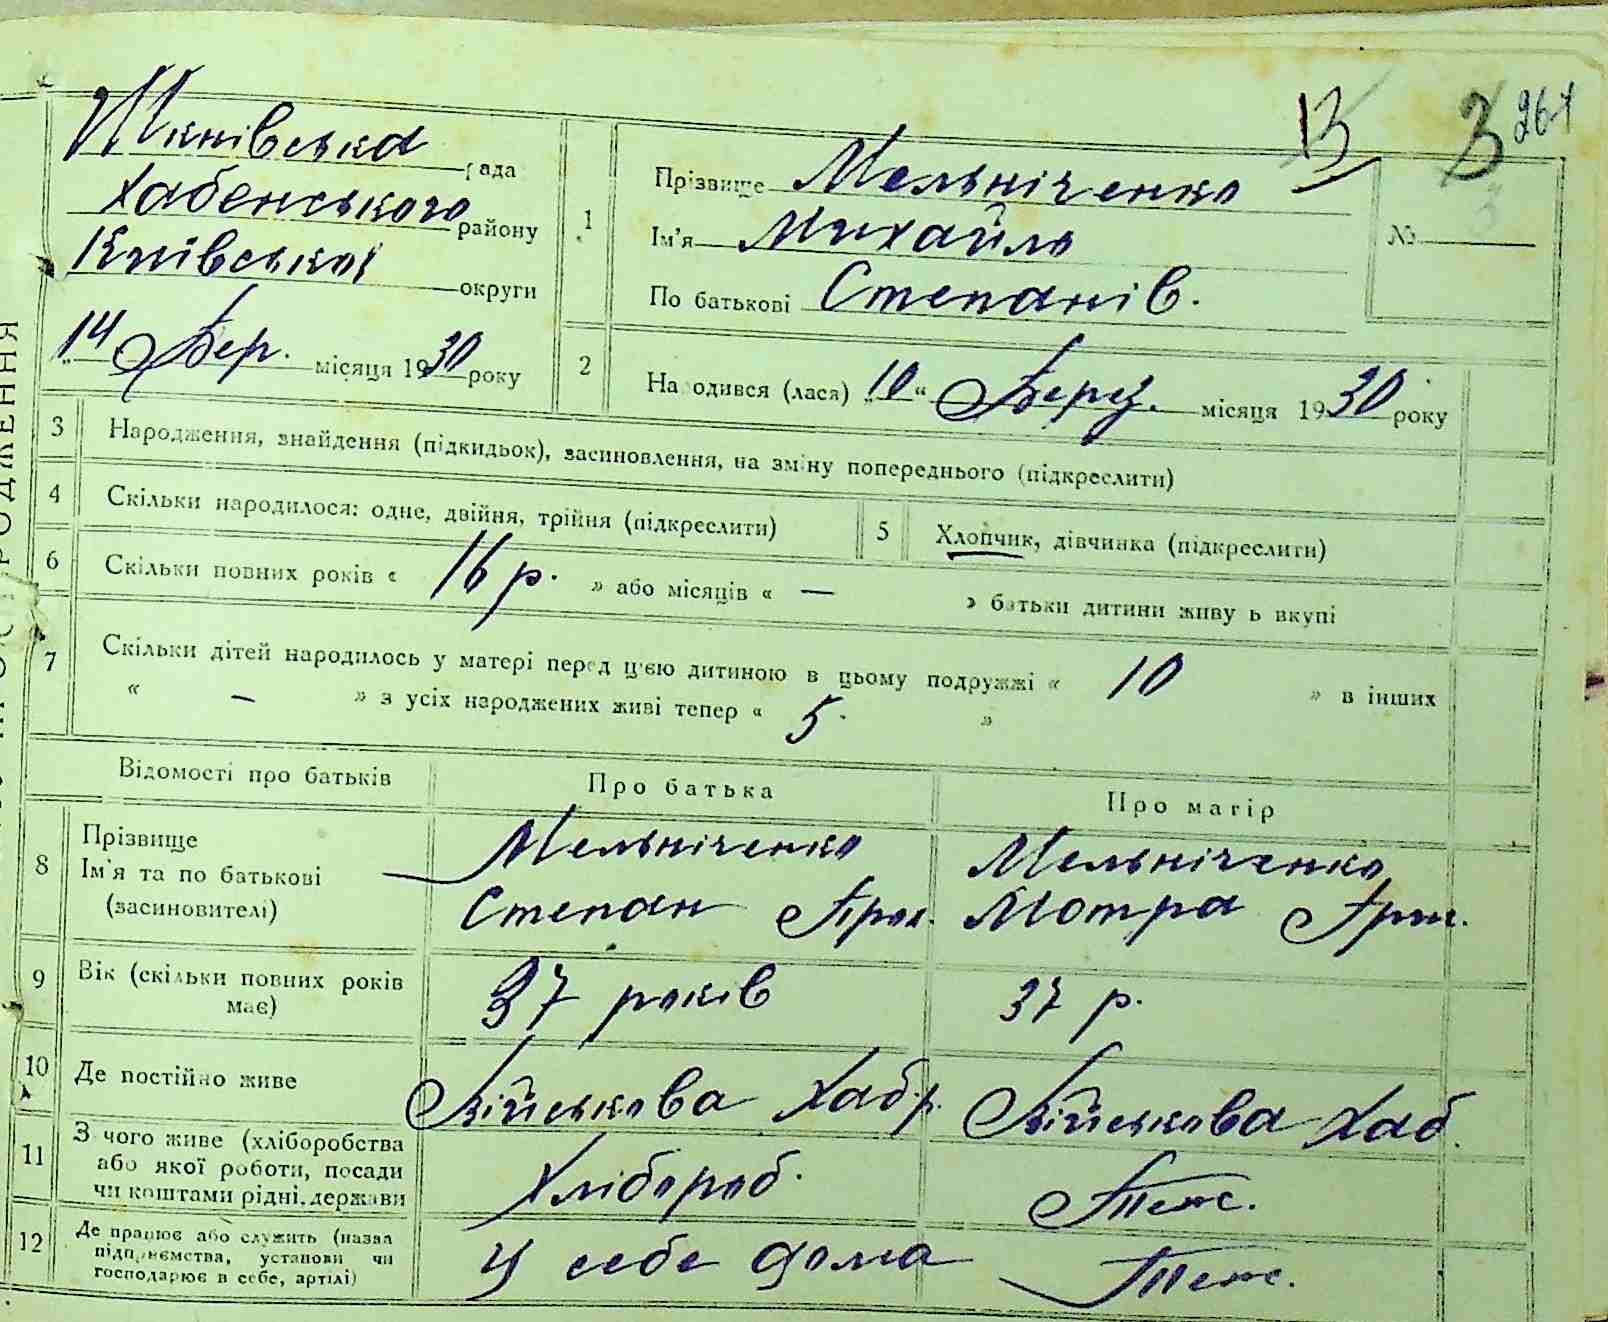 13 3 261
рада
Хабенського району
Київської округи
"14" Бер. місяця 1930 року
1 Прізвище Мельніченко
Ім'я Михайло
По батькові Степанів.
№
2 Народився (лася) "10" Берез. місяця 1930 року
3 Народження, знайдення (підкидьок), засиновлення, на зміну попереднього (підкреслити)
4 Скільки народилося: одне, двійня, трійня (підкреслити) 5 Хлопчик, дівчинка (підкреслити)
6 Скільки повних років « 16 р. » або місяців « — » батьки дитини живуть вкупі
7 Скільки дітей народилось у матері перед цією дитиною в цьому подружжі « 10 » в інших
« – » з усіх народжених живі тепер « 5 »
Відомості про батьків Про батька Про матір
8 Прізвище Ім'я та по батькові (засиновителі)
Мельніченко Степан
Мельніченко Мотра
9 Вік (скільки повних років має) 37 років 37 р.
10 Де постійно живе Військова Хаб.р. Військова Хаб.
11 З чого живе (хліборобства або якої роботи, посади чи коштами рідні, держави Хлібороб. Теж.
12 Де працює або служить (назва підприємства, установи чи господарює в себе, артілі) У себе дома Теж.